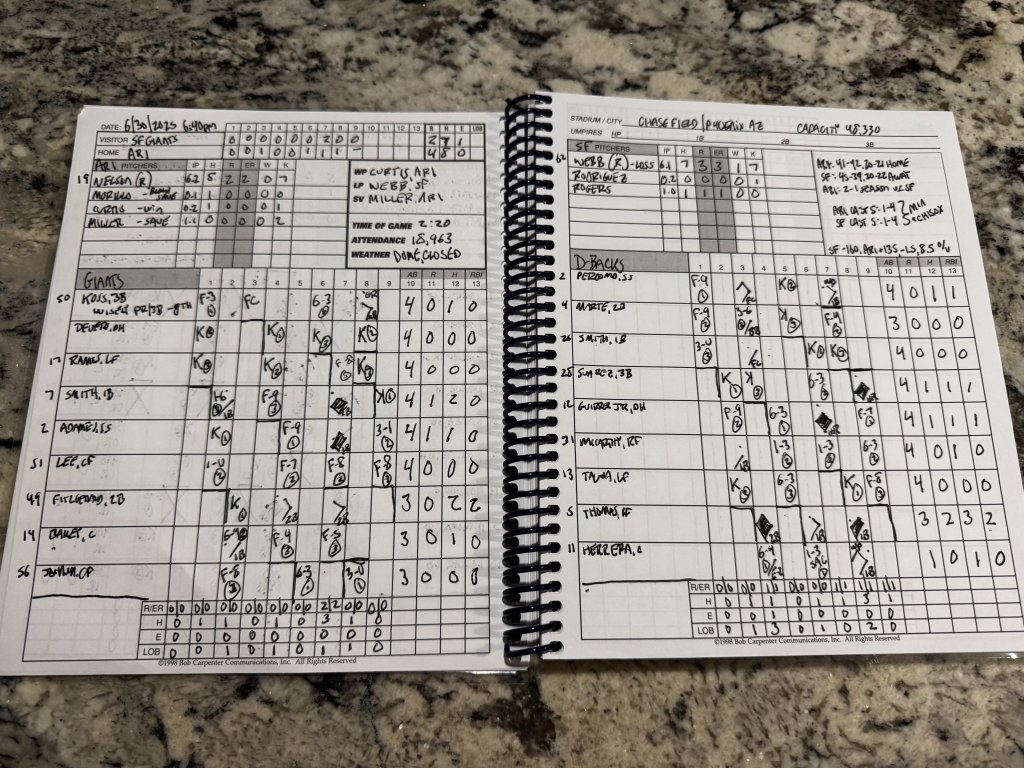 DATE: 6/30/2025 6:40pm
1 2 3 4 5 6 7 8 9 10 11 12 13 R H E LOB
VISITOR SF GIANTS 0 0 0 0 0 2 0 0 2 7 1
HOME ARI 0 0 1 0 0 1 1 - 4 8 0
ARI PITCHERS IP H R ER W K
19 NELSON (R) 6.2 5 2 2 0 7
MORILLO 0.1 1 0 0 0 0
CURTIS -WIN 0.2 1 0 0 0 1
MILLER -SAVE 1.1 0 0 0 0 2
WP CURTIS, ARI
LP WEBB, SF
SV MILLER, ARI
TIME OF GAME 2:20
ATTENDANCE 18,963
WEATHER DOME, CLOSED
GIANTS 1 2 3 4 5 6 7 8 9 AB 10 R 11 H 12 RBI 13
50 KOSS, 3B F-3 FC 6-3 4 0 1 0
WISELY PR/3B -8TH
DEVERS, DH K K K K 4 0 0 0
17 RAMOS, LF K K F-8 K 4 0 0 0
7 SMITH, 1B 1-6 1B F-9 K 4 1 2 0
2 ADAMES, SS K F-9 3-1 4 1 1 0
51 LEE, CF 1-U F-7 F-8 F-8 4 0 0 0
49 FITZGERALD, 2B K 2B 2B 3 0 2 2
14 BAILEY, C 1B F-4 F-5 3 0 1 0
56 F-8 6-3 3-U 3 0 0 0
R/ER 0/0 0/0 0/0 0/0 0/0 0/0 2/2 0/0 0/0
H 0 1 1 0 1 0 3 1 0
E 0 0 0 0 0 0 0 0 0
LOB 0 0 1 0 1 0 1 1 0
©1998 Bob Carpenter Communications, Inc. All Rights Reserved
STADIUM / CITY CHASE FIELD / PHOENIX AZ CAPACITY 48,330
UMPIRES HP 1B 2B 3B
SF PITCHERS IP H R ER W K
62 WEBB (R) -LOSS 6.1 7 3 3 1 7
RODRIGUEZ 0.2 0 0 0 0 1
ROGERS 1.0 1 1 1 0 0
ARI: 41-42, 20-21 HOME
SF: 45-39, 20-22 AWAY
ARI: 2-1 SEASON vs SF
ARI LAST 5: 1-4 MIA
SF LAST 5: 1-4 CHISOX
SF -160, ARI +135 -1.5, 8.5 O/U
D-BACKS 1 2 3 4 5 6 7 8 9 AB 10 R 11 H 12 RBI 13
2 PERDOMO, SS F-9 FC K 4 0 1 1
4 MARTE, 2B F-9 3-6 K F-4 3 0 0 0
26 SMITH, 1B 3-U FC K K 4 0 0 0
28 SUAREZ, 3B K K 6-3 4 1 1 1
12 GURRIEL JR, DH F-9 6-3 F-7 4 1 1 1
31 MCCARTHY, RF 1B 1-3 1-3 6-3 4 0 1 0
13 TAWA, LF K 6-3 K F-8 4 0 0 0
5 THOMAS, CF 2B 1B 3 2 3 2
11 HERRERA, C 6-4 1-3 SAC 1B 1 0 1 0
R/ER
H 0 1 1 1 0 1 1 3 1
E 0 0 0 0 0 0 0 0
LOB 0 1 3 0 1 0 2 0
©1998 Bob Carpenter Communications, Inc. All Rights Reserved